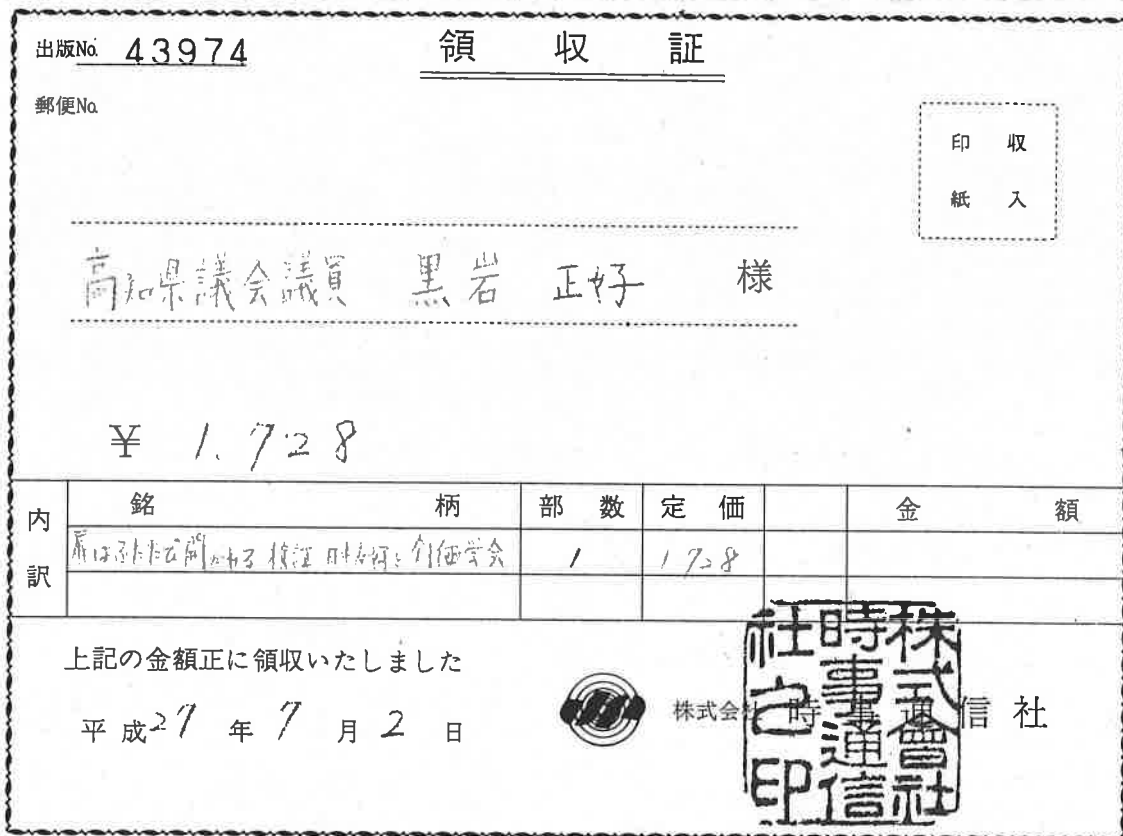 出版No. 43974
領収証
郵便No.
印収
紙入
高知県議会議員 黒岩 正好 様
¥ 1.728
内訳 銘柄 部数 定価 金額
扉はふたたび開かれる 検証 日中友好と創価学会 1 1728
上記の金額正に領収いたしました
平成27年7月2日
株式会社 時事通信社
株式會社時事通信社之印